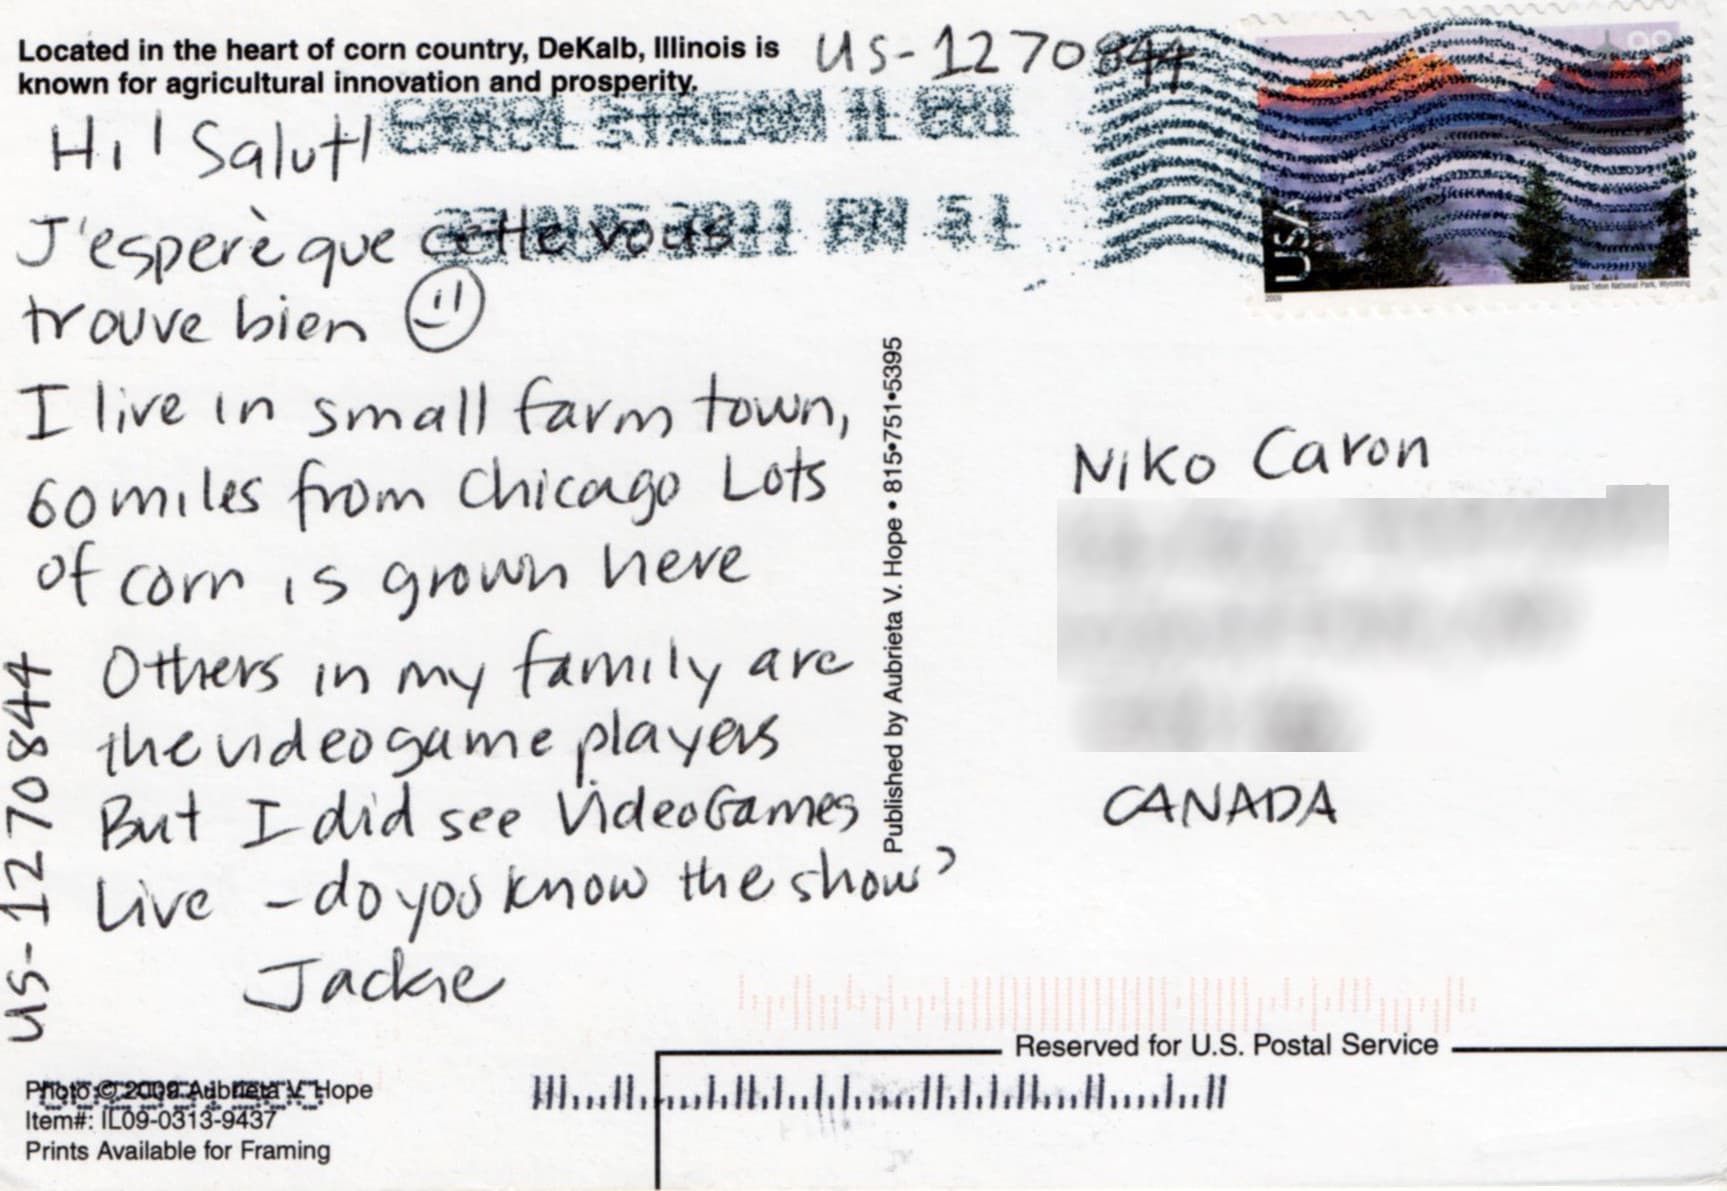 Located in the heart of corn country, DeKalb, Illinois is
known for agricultural innovation and prosperity.
US-1270844
CAROL STREAM IL 601
2011 PM 5 L
USA
98
2009
Grand Teton National Park, Wyoming
Hi! Salut!
J'esperè que cette vous
trouve bien
I live in small farm town,
60 miles from Chicago Lots
of corn is grown here
Others in my family are
the videogame players
But I did see VideoGames
Live - do you know the show?
Jackie
US-1270844
Published by Aubrieta V. Hope • 815•751•5395
Niko Caron
CANADA
Reserved for U.S. Postal Service
Photo © 2009 Aubrieta V. Hope
Item#: IL09-0313-9437
Prints Available for Framing